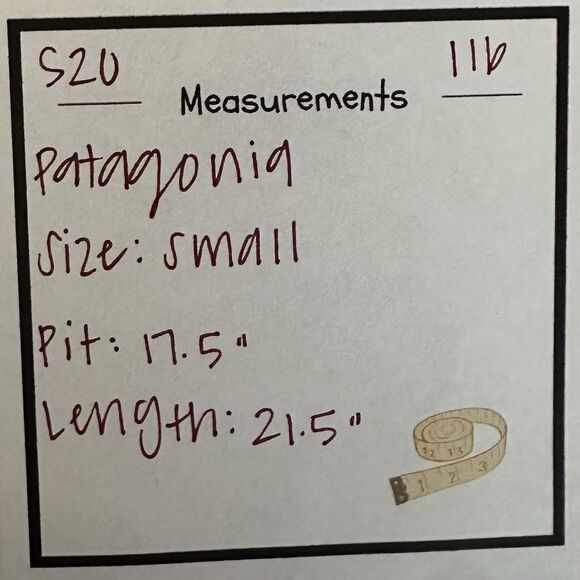 S20 11b
Measurements
Patagonia
Size: Small
Pit: 17.5"
Length: 21.5"
12 13
1 2 3